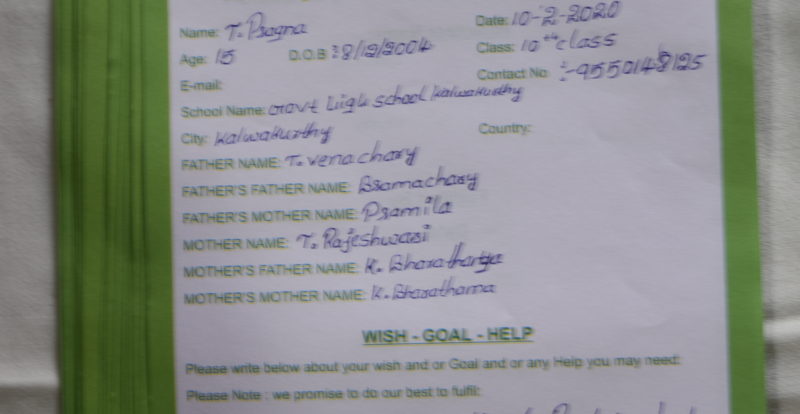 Name: T. Pragna Date: 10-2-2020
Age: 15 D.O.B: 8/12/2004 Class: 10th class
E-mail: Contact No :- 9550148125
School Name: Govt High school kalwakurthy
City: kalwakurthy Country:
FATHER NAME: T. venachary
FATHER'S FATHER NAME: Bramachary
FATHER'S MOTHER NAME: Pramila
MOTHER NAME: T. Rajeshwari
MOTHER'S FATHER NAME: K.
MOTHER'S MOTHER NAME: K. Bharathama
WISH - GOAL - HELP
Please write below about your wish and or Goal and or any Help you may need:
Please Note : we promise to do our best to fulfil: